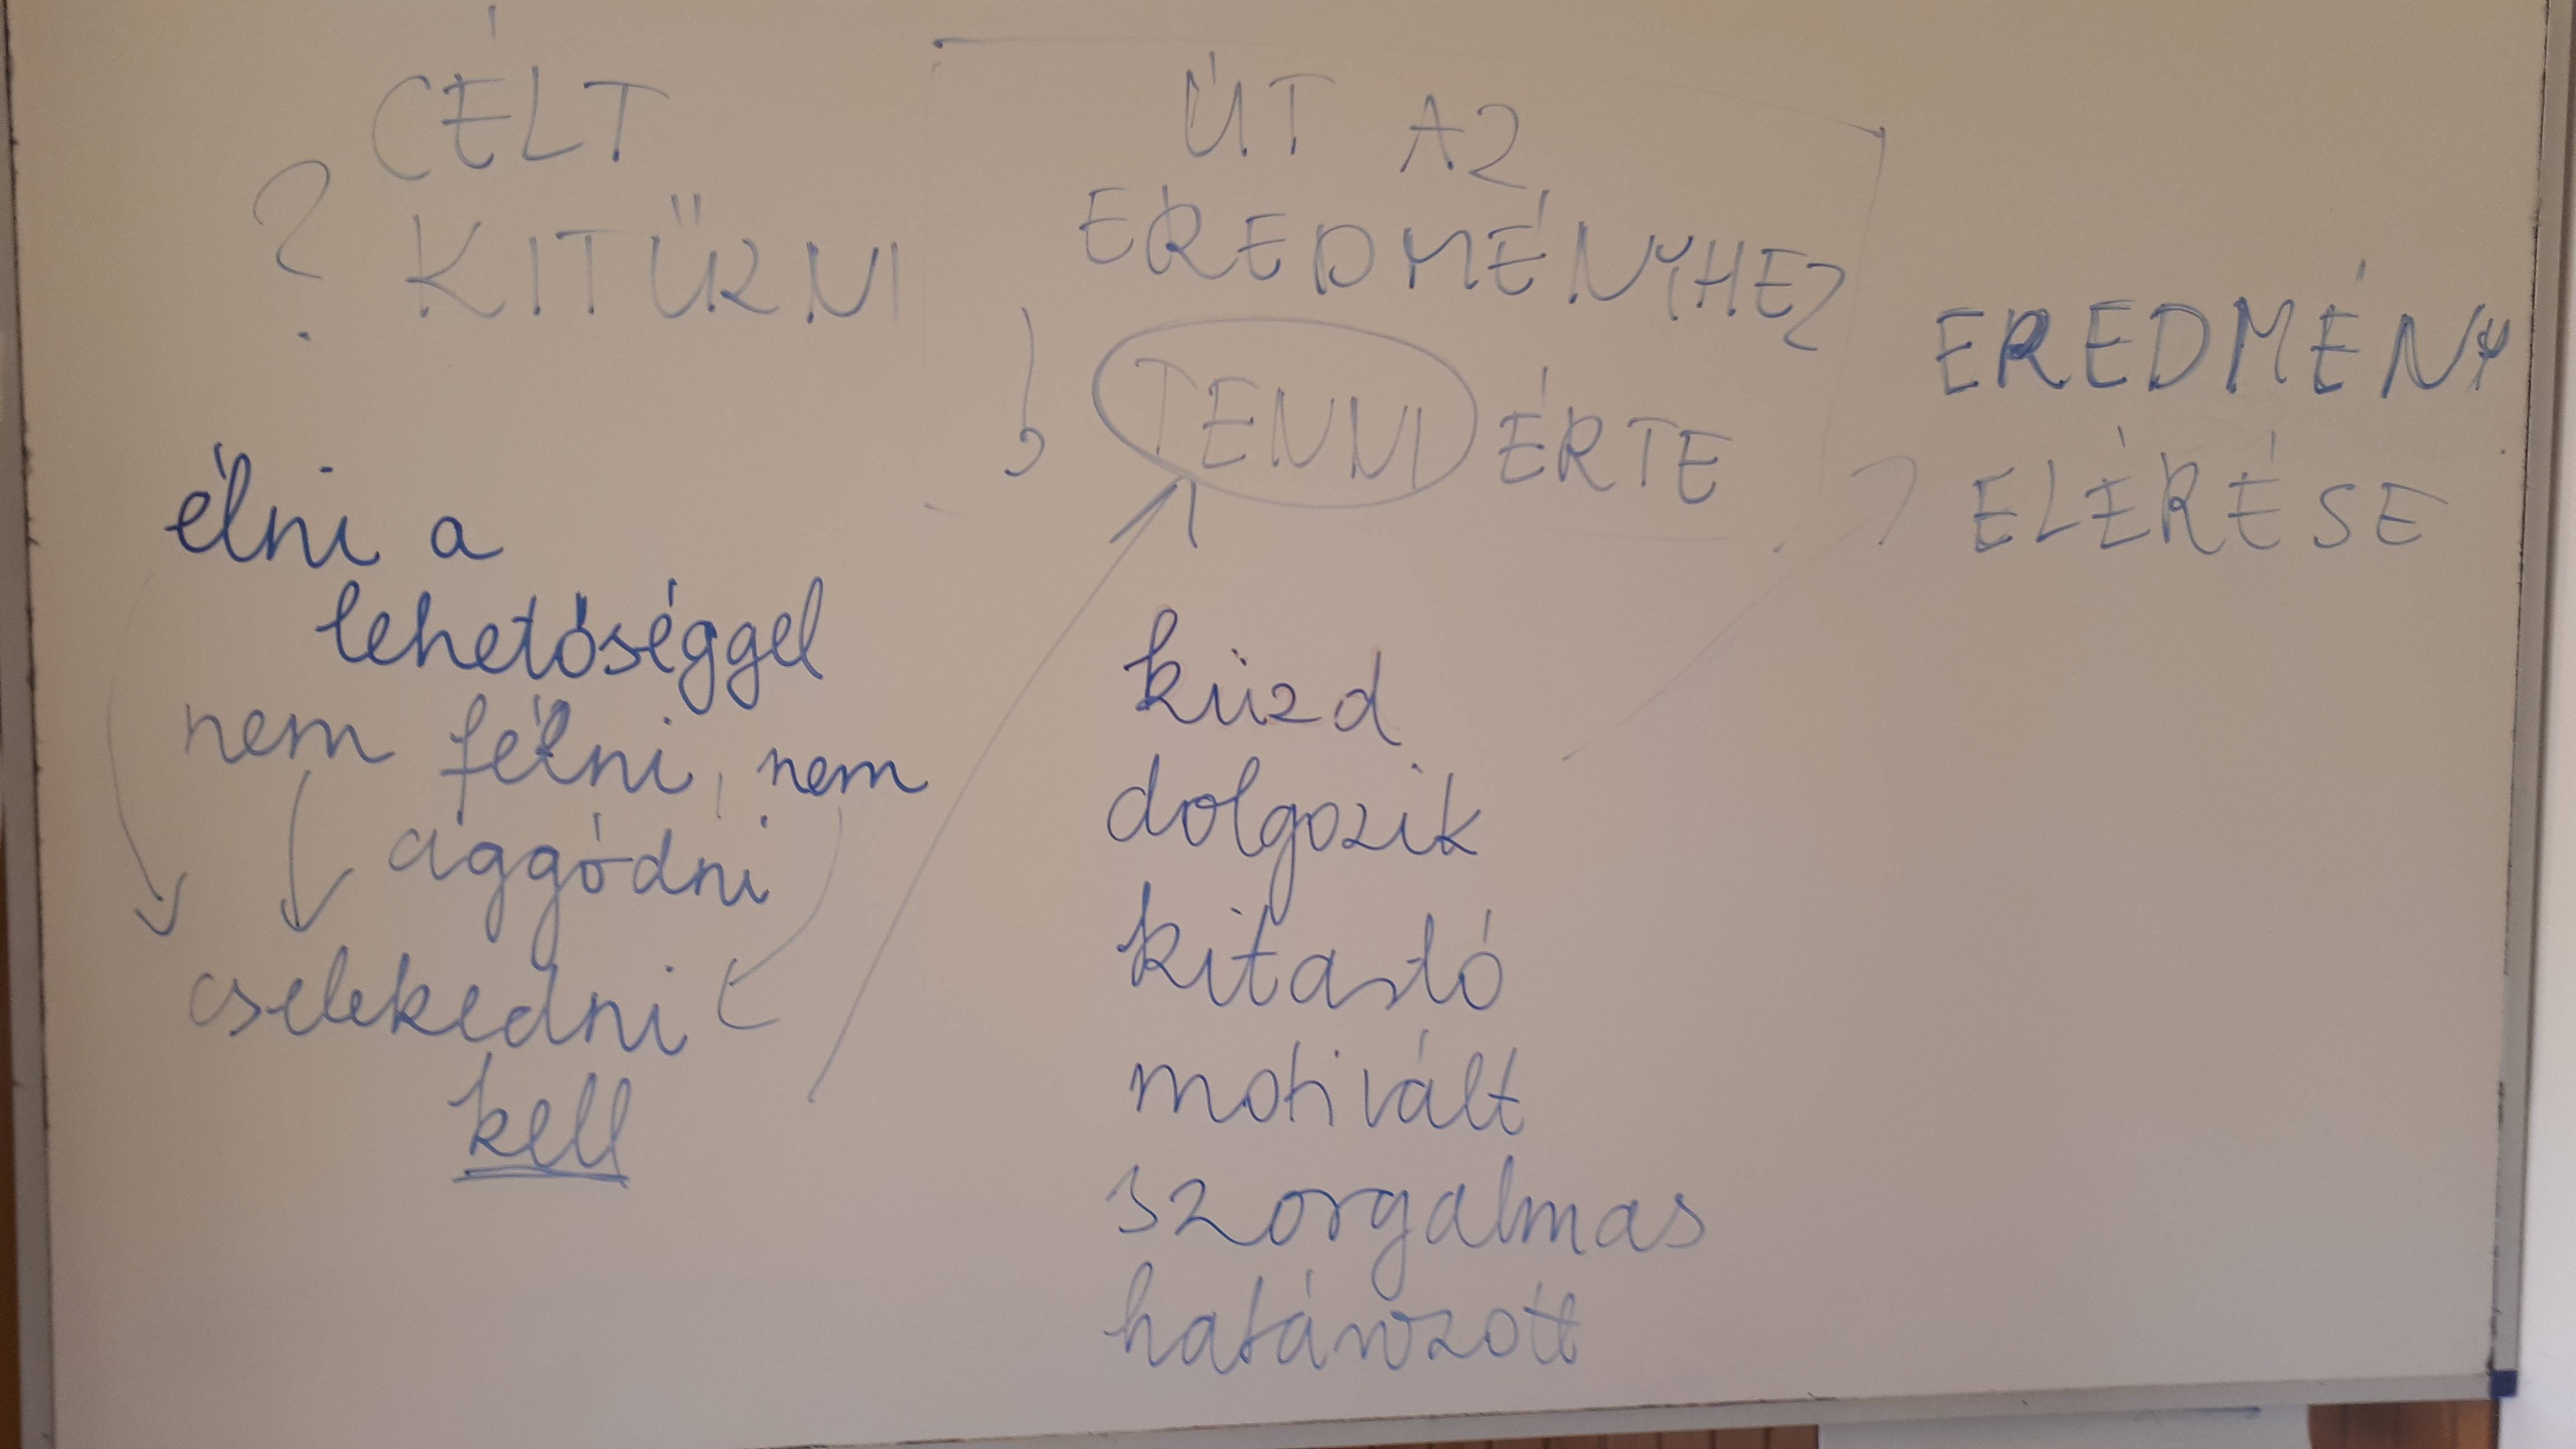 CÉLT
? KITŰRNI
élni a
lehetőséggel
nem félni, nem
aggódni
cselekedni
kell
ÚT AZ
EREDMÉNYHEZ
TENNI ÉRTE
küzd
dolgozik
kitartó
motivált
szorgalmas
határozott
EREDMÉNY
ELÉRÉSE